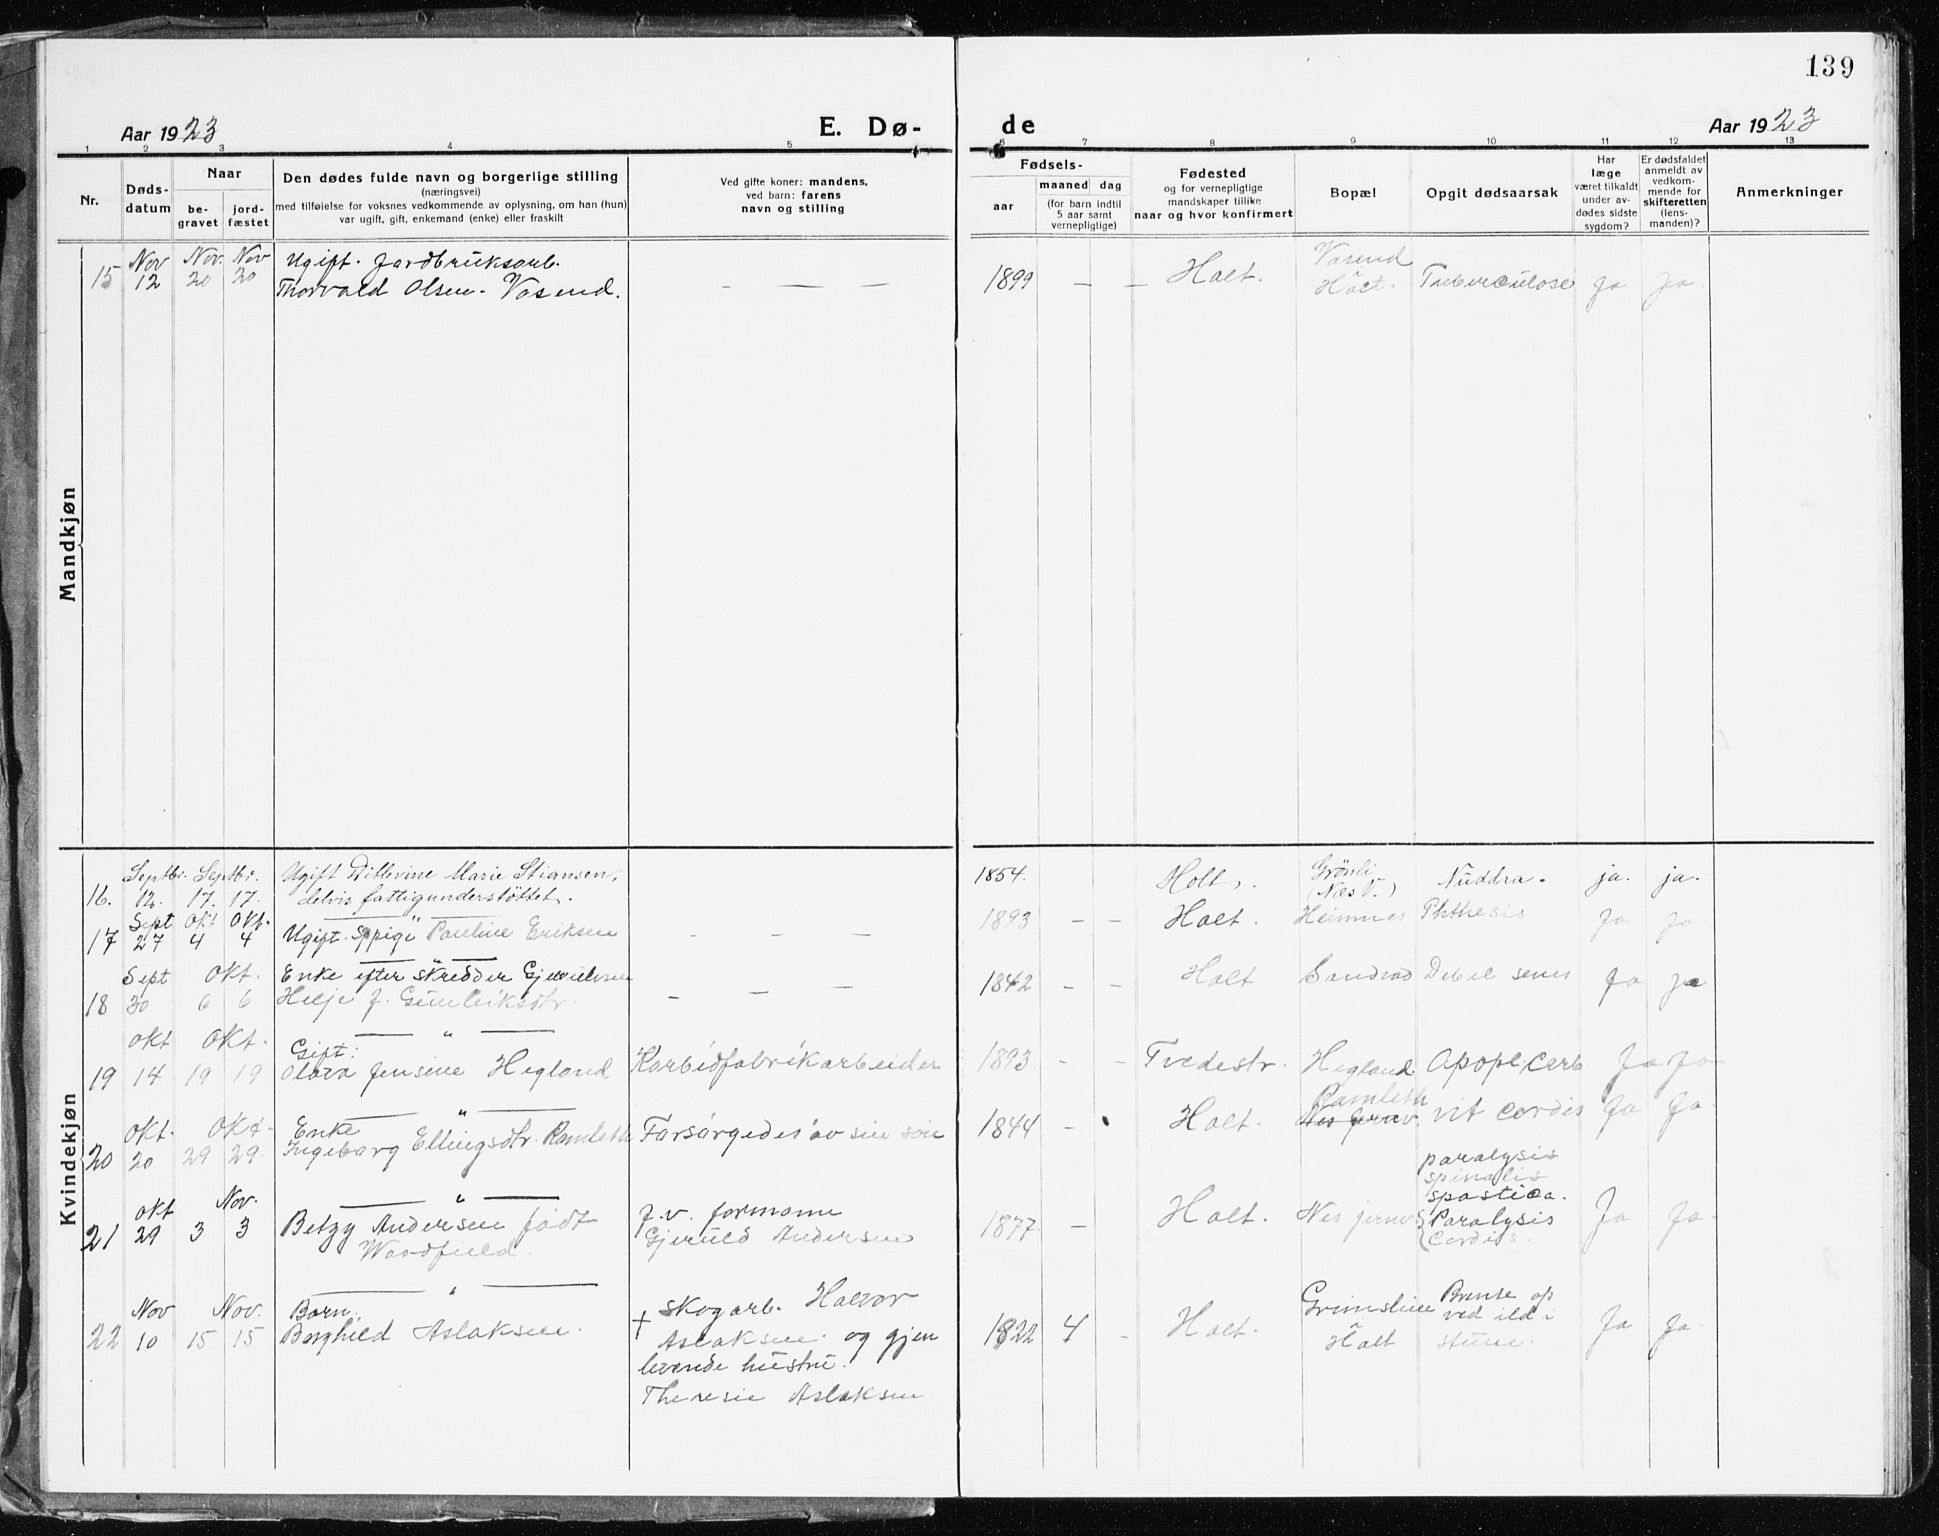 139
Aar 1923
E. Dø-
de
Aar 1923
1 2 3 4 5 6 7 8 9 10 11 12 13
Nr.
Døds-
datum
Naar
be-
gravet
jord-
fæstet
Den dødes fulde navn og borgerlige stilling
(næringsvei)
med tilføielse for voksnes vedkommende av oplysning, om han (hun)
var ugift, gift, enkemand (enke) eller fraskilt
Ved gifte koner: mandens,
ved barn: farens
navn og stilling
Fødsels-
aar
maaned dag
(for barn indtil
5 aar samt
vernepligtige)
Fødested
og for vernepligtige
mandskaper tillike
naar og hvor konfirmert
Bopæl
Opgit dødsaarsak
Har
læge
været tilkaldt
under av-
dødes sidste
sygdom?
Er dødsfaldet
anmeldt av
vedkom-
mende for
skifteretten
(lens-
manden)?
Anmerkninger
Mandkjøn
15 Nov 12 Nov. 20 Nov 20
Ugift. Jordbruksarb.
Thorvald Olsen. Vasend.
— — —
1899 — — Holt.
Vasend
i
Holt.
Tuberculose ja ja.
Kvindekjøn
16. Septbr. 12. Septbr. 17. 17.
Ugift Ditlevine Marie Stiansen,
delvis fattigunderstöttet.
1854. Holt.
Grönli
(Næs V.)
Nuddra. ja. ja.
17 Sept 27 Okt 4 Okt. 4
— " —
Ugift. Pauline Eriksen
— — —
1893 — — Holt. Heimnes Phthesis Ja Ja
18 Sept 30 Okt. 6 6
— " —
Enke efter skredder
Helje J. Gunleiksdtr.
— — —
1842 — — Holt Sandvad Debil senes Ja ja
19 Okt 14 Okt. 19 19
— " —
Gift:
Olava Jensine Hegland
Karbidfabrikarbeider
1893 — — Tvedestr. Hegland Apopl. cerb. Ja Ja
20 Okt. 20 Okt. 29 29.
— " —
Enke
Ingeborg Ellingsdtr. Ramleth
Forsørgedes av sin søn
1844 — Holt.
Ramleth
Nes jernv.
vit cordis Ja Ja
21 Okt 29 Nov. 3 3
— " —
Betzy Andersen født
Woodfield.
f.v. formann
Gjeruld Andersen
1877. — Holt. Nes jernv.
paralysis
spinalis
spastica.
Paralysis
Cordis.
Ja Ja.
22 Nov 10 Nov. 15 15
— " —
Barn.
Borghild Aslaksen.
+ skogarb. Halvor
Aslaksen. og gjen
levende hustru.
Theresie Aslaksen
1922 4 — Holt.
Grimsliene
i
Holt
Brente op
ved ild i
stuen.
Ja Ja.